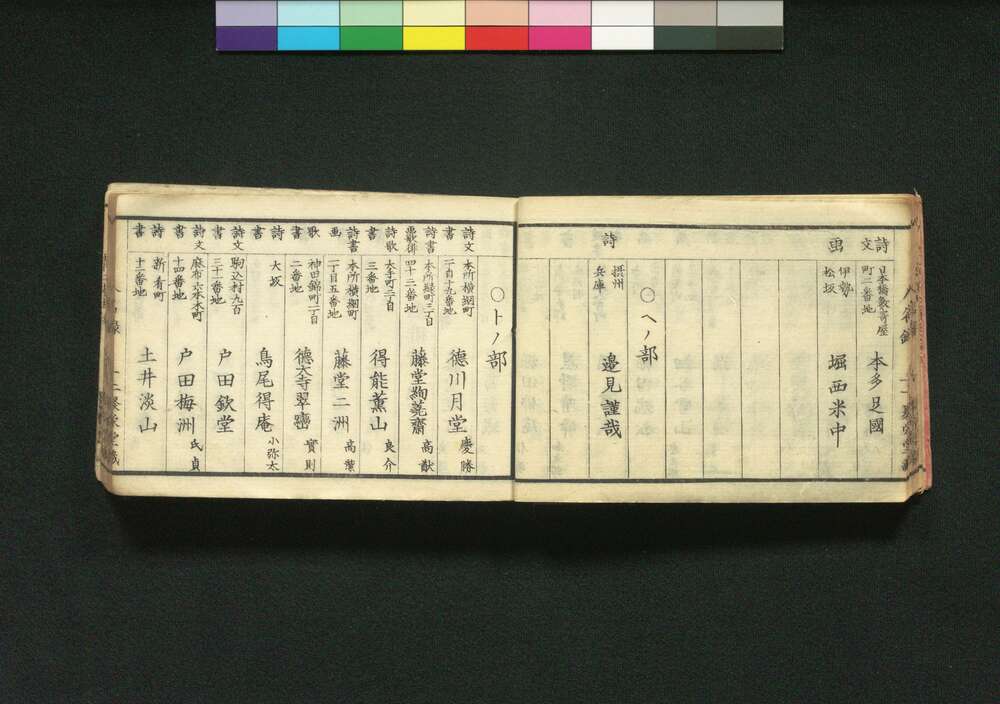 詩文 日本橋数寄屋町三番地 本多足國
画 伊勢松坂 堀西米中
〇ヘノ部
詩 摂州兵庫 邉見謹哉
〇トノ部
詩文書 本所横網町二丁目十九番地 德川月堂 慶勝
詩書画歌俳 本所緑町三丁目四十二番地 藤堂 高猷
詩歌書 大手町二丁目三番地 得能薫山 良介
詩書画 本所横網町一丁目五番地 藤堂二洲 高葉
歌書 神田錦町一丁目二番地 德大寺翠巒 實則
詩書 大坂 鳥尾得庵 小弥太
詩文書 駒込村九百三十一番地 戸田欽堂
詩文書 麻布六本木町十四番地 戸田梅洲 氏貞
詩書 新肴町十一番地 土井淡山